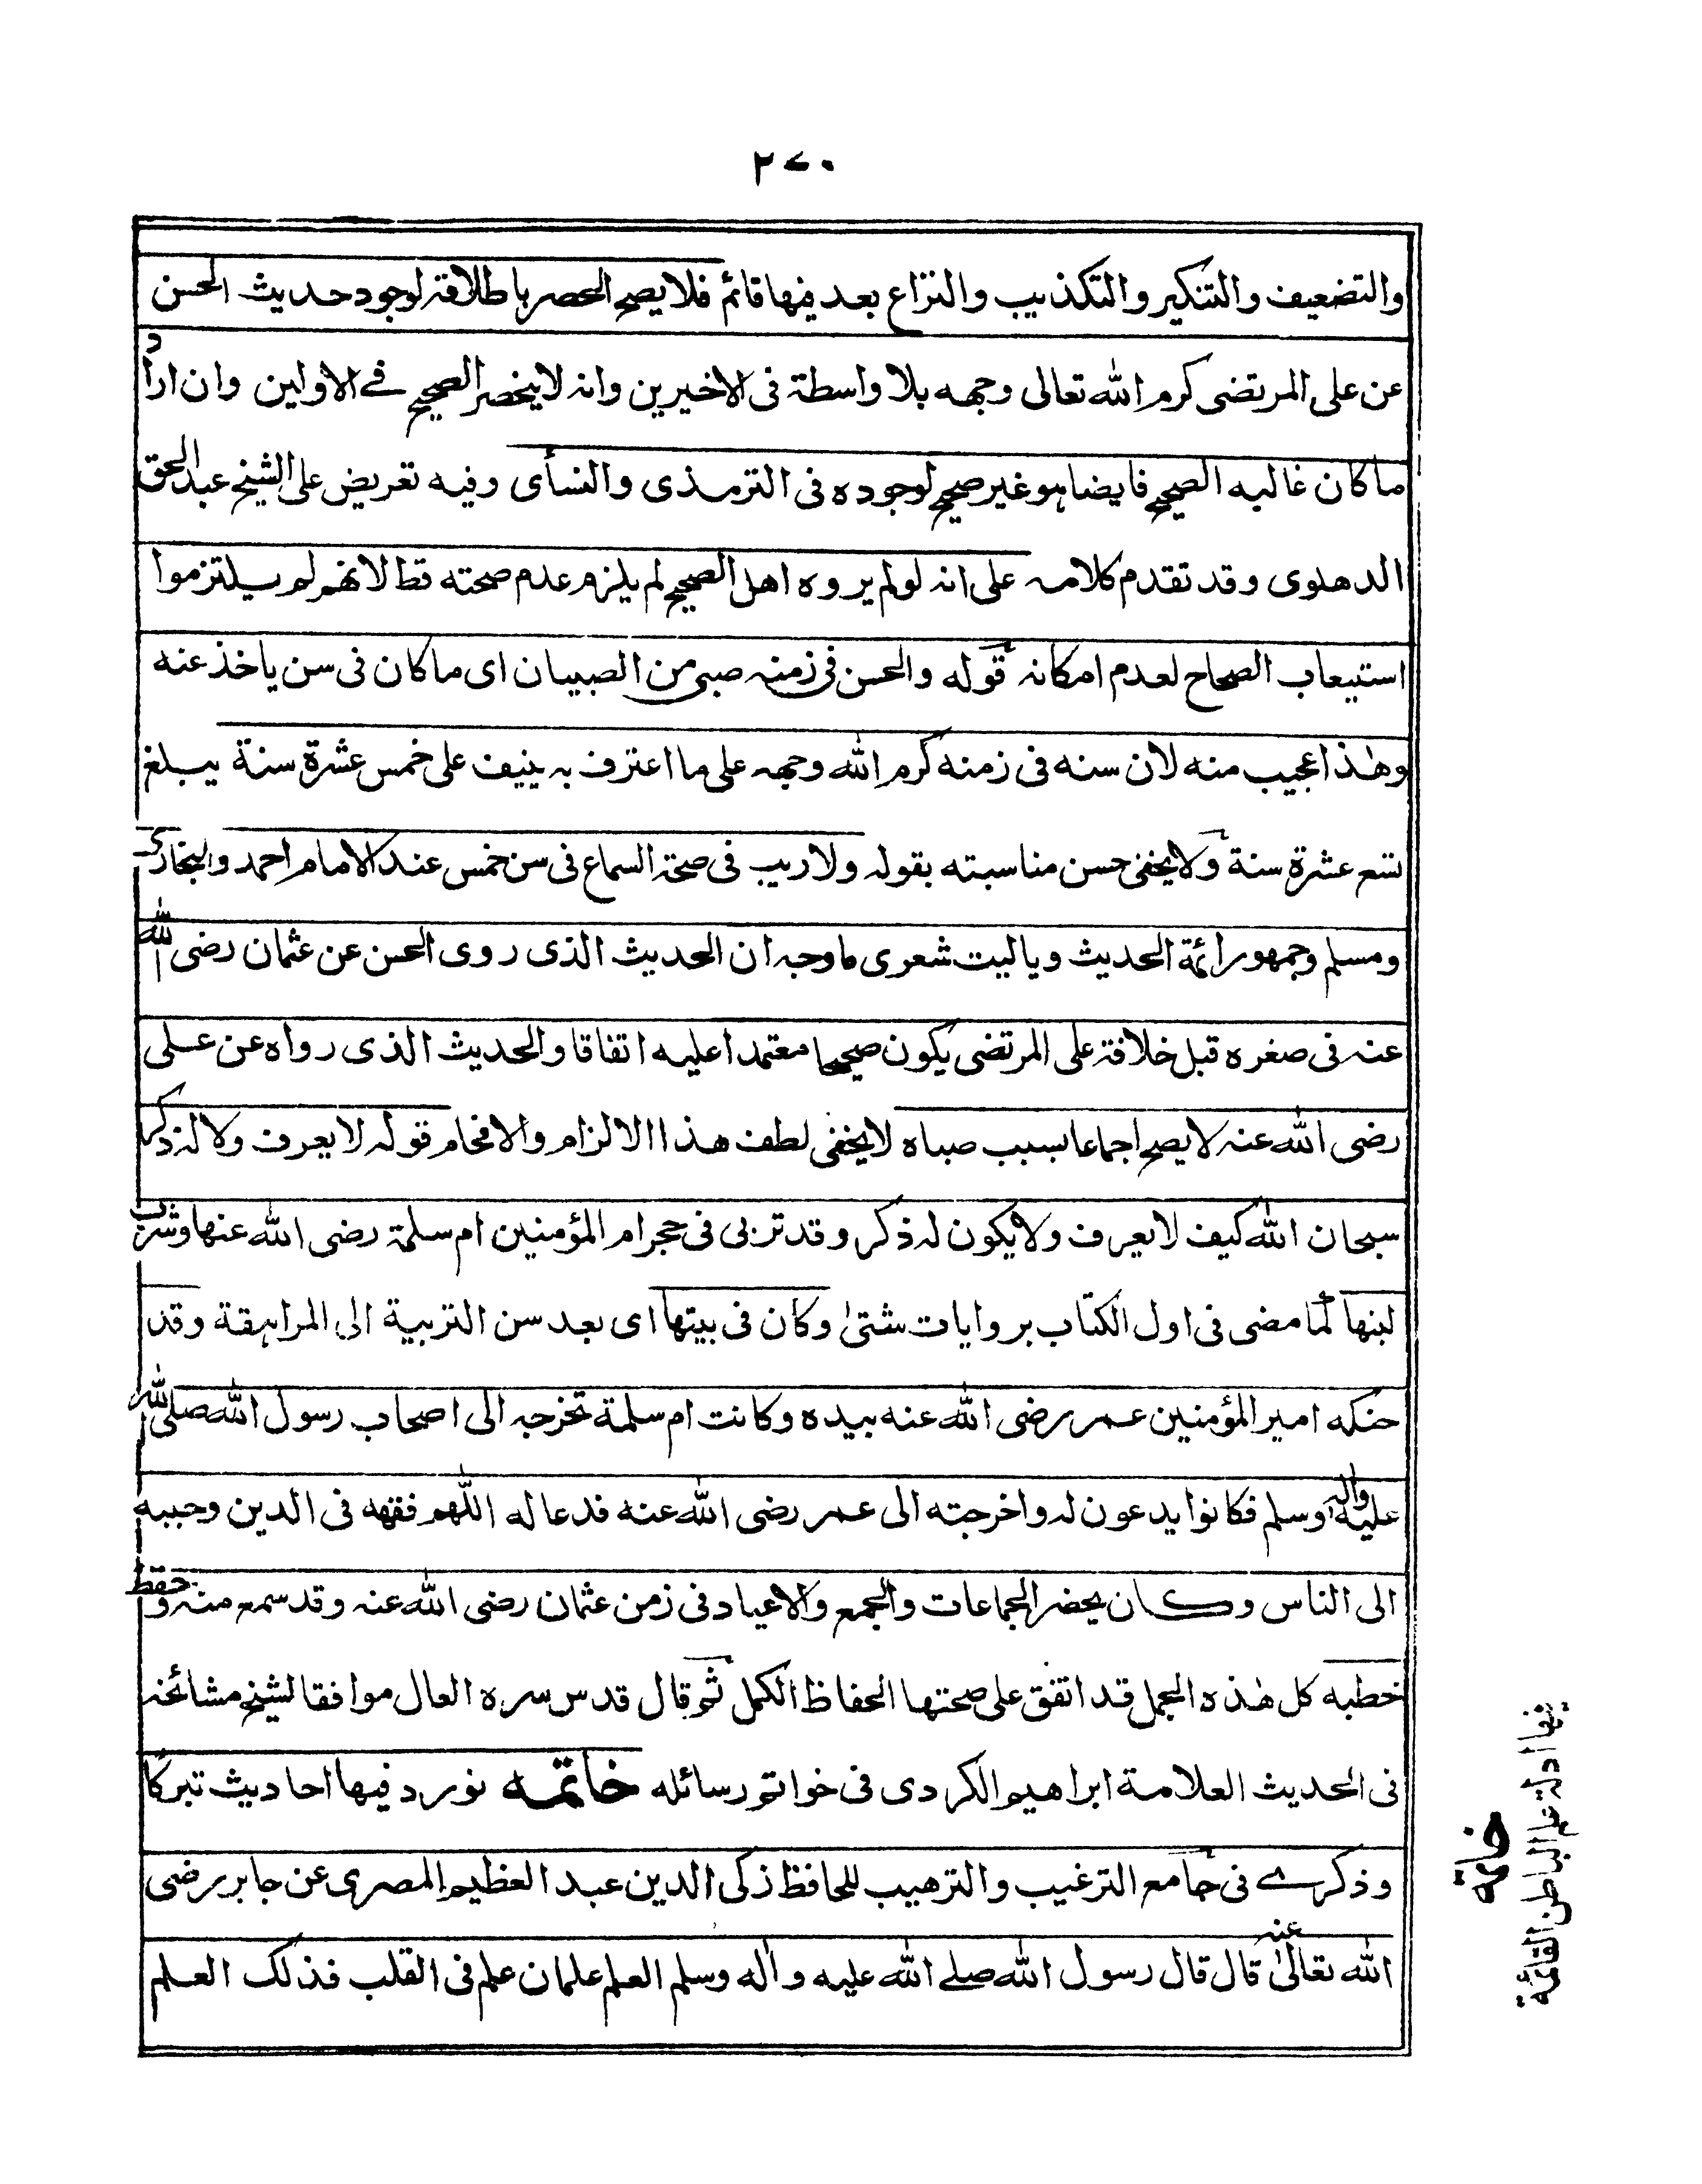 ٢٧٠
والتضعيف والتنكير والتكذيب والنزاع بعد فيها قائم فلا يصح الحصر باطلاقه لوجود حديث الحسن
عن علي المرتضى كرم الله تعالى وجهه بلا واسطة في الاخيرين وانه لا ينحصر الصحيح في الاولين وان اراد
ما كان غالبه الصحيح فايضا هو غير صحيح لوجوده في الترمذي والنسأى وفيه تعريض على الشيخ عبد الحق
الدهلوى وقد تقدم كلامه على انه لو لم يروه اهل الصحيح لم يلزم عدم صحته قط لانهم لم يلتزموا
استيعاب الصحاح لعدم امكانه قوله والحسن في زمنه صبي من الصبيان اى ما كان في سن ياخذ عنه
وهذا عجيب منه لان سنه في زمنه كرم الله وجهه على ما اعترف به ينيف على خمس عشرة سنة يبلغ
تسع عشرة سنة ولا يخفى حسن مناسبته بقوله ولا ريب في صحة السماع في سن خمس عند الامام احمد والبخاري
ومسلم وجمهور ائمة الحديث ويا ليت شعرى ما وجه ان الحديث الذى روى الحسن عن عثمان رضى الله
عنه في صغره قبل خلافة على المرتضى يكون صحيحا معتمدا عليه اتفاقا والحديث الذى رواه عن على
رضى الله عنه لا يصح اجماعا بسبب صباه لا يخفى لطف هذا الالزام والافحام قوله لا يعرف ولا له ذكر
سبحان الله كيف لا يعرف ولا يكون له ذكر وقد تربى في حجر ام المؤمنين ام سلمة رضى الله عنها وشرب
لبنها لما مضى في اول الكتاب بروايات شتى وكان في بيتها اى بعد سن التربية الى المراهقة وقد
حنكه امير المؤمنين عمر رضى الله عنه بيده وكانت ام سلمة تخرجه الى اصحاب رسول الله صلى الله
عليه واله وسلم فكانوا يدعون له واخرجته الى عمر رضى الله عنه فدعا له اللهم فقهه في الدين وحببه
الى الناس وكان يحضر الجماعات والجمع والاعياد في زمن عثمان رضى الله عنه وقد سمع منه وحفظ
خطبه كل هذه الجمل قد اتفق على صحتها الحفاظ الكمل ثم قال قدس سره العال موافقا لشيخ مشائخه
في الحديث العلامة ابراهيم الكردى في خواتم رسائله خاتمه نورد فيها احاديث تبركا
وذكرے في جامع الترغيب والترهيب للحافظ زكى الدين عبد العظيم المصرى عن جابر رضى
الله تعالى عنه قال قال رسول الله صلے الله عليه واله وسلم العلم علمان علم في القلب فذلك العلم
خاتمة
فيها ادلة علم الباطن القائمة